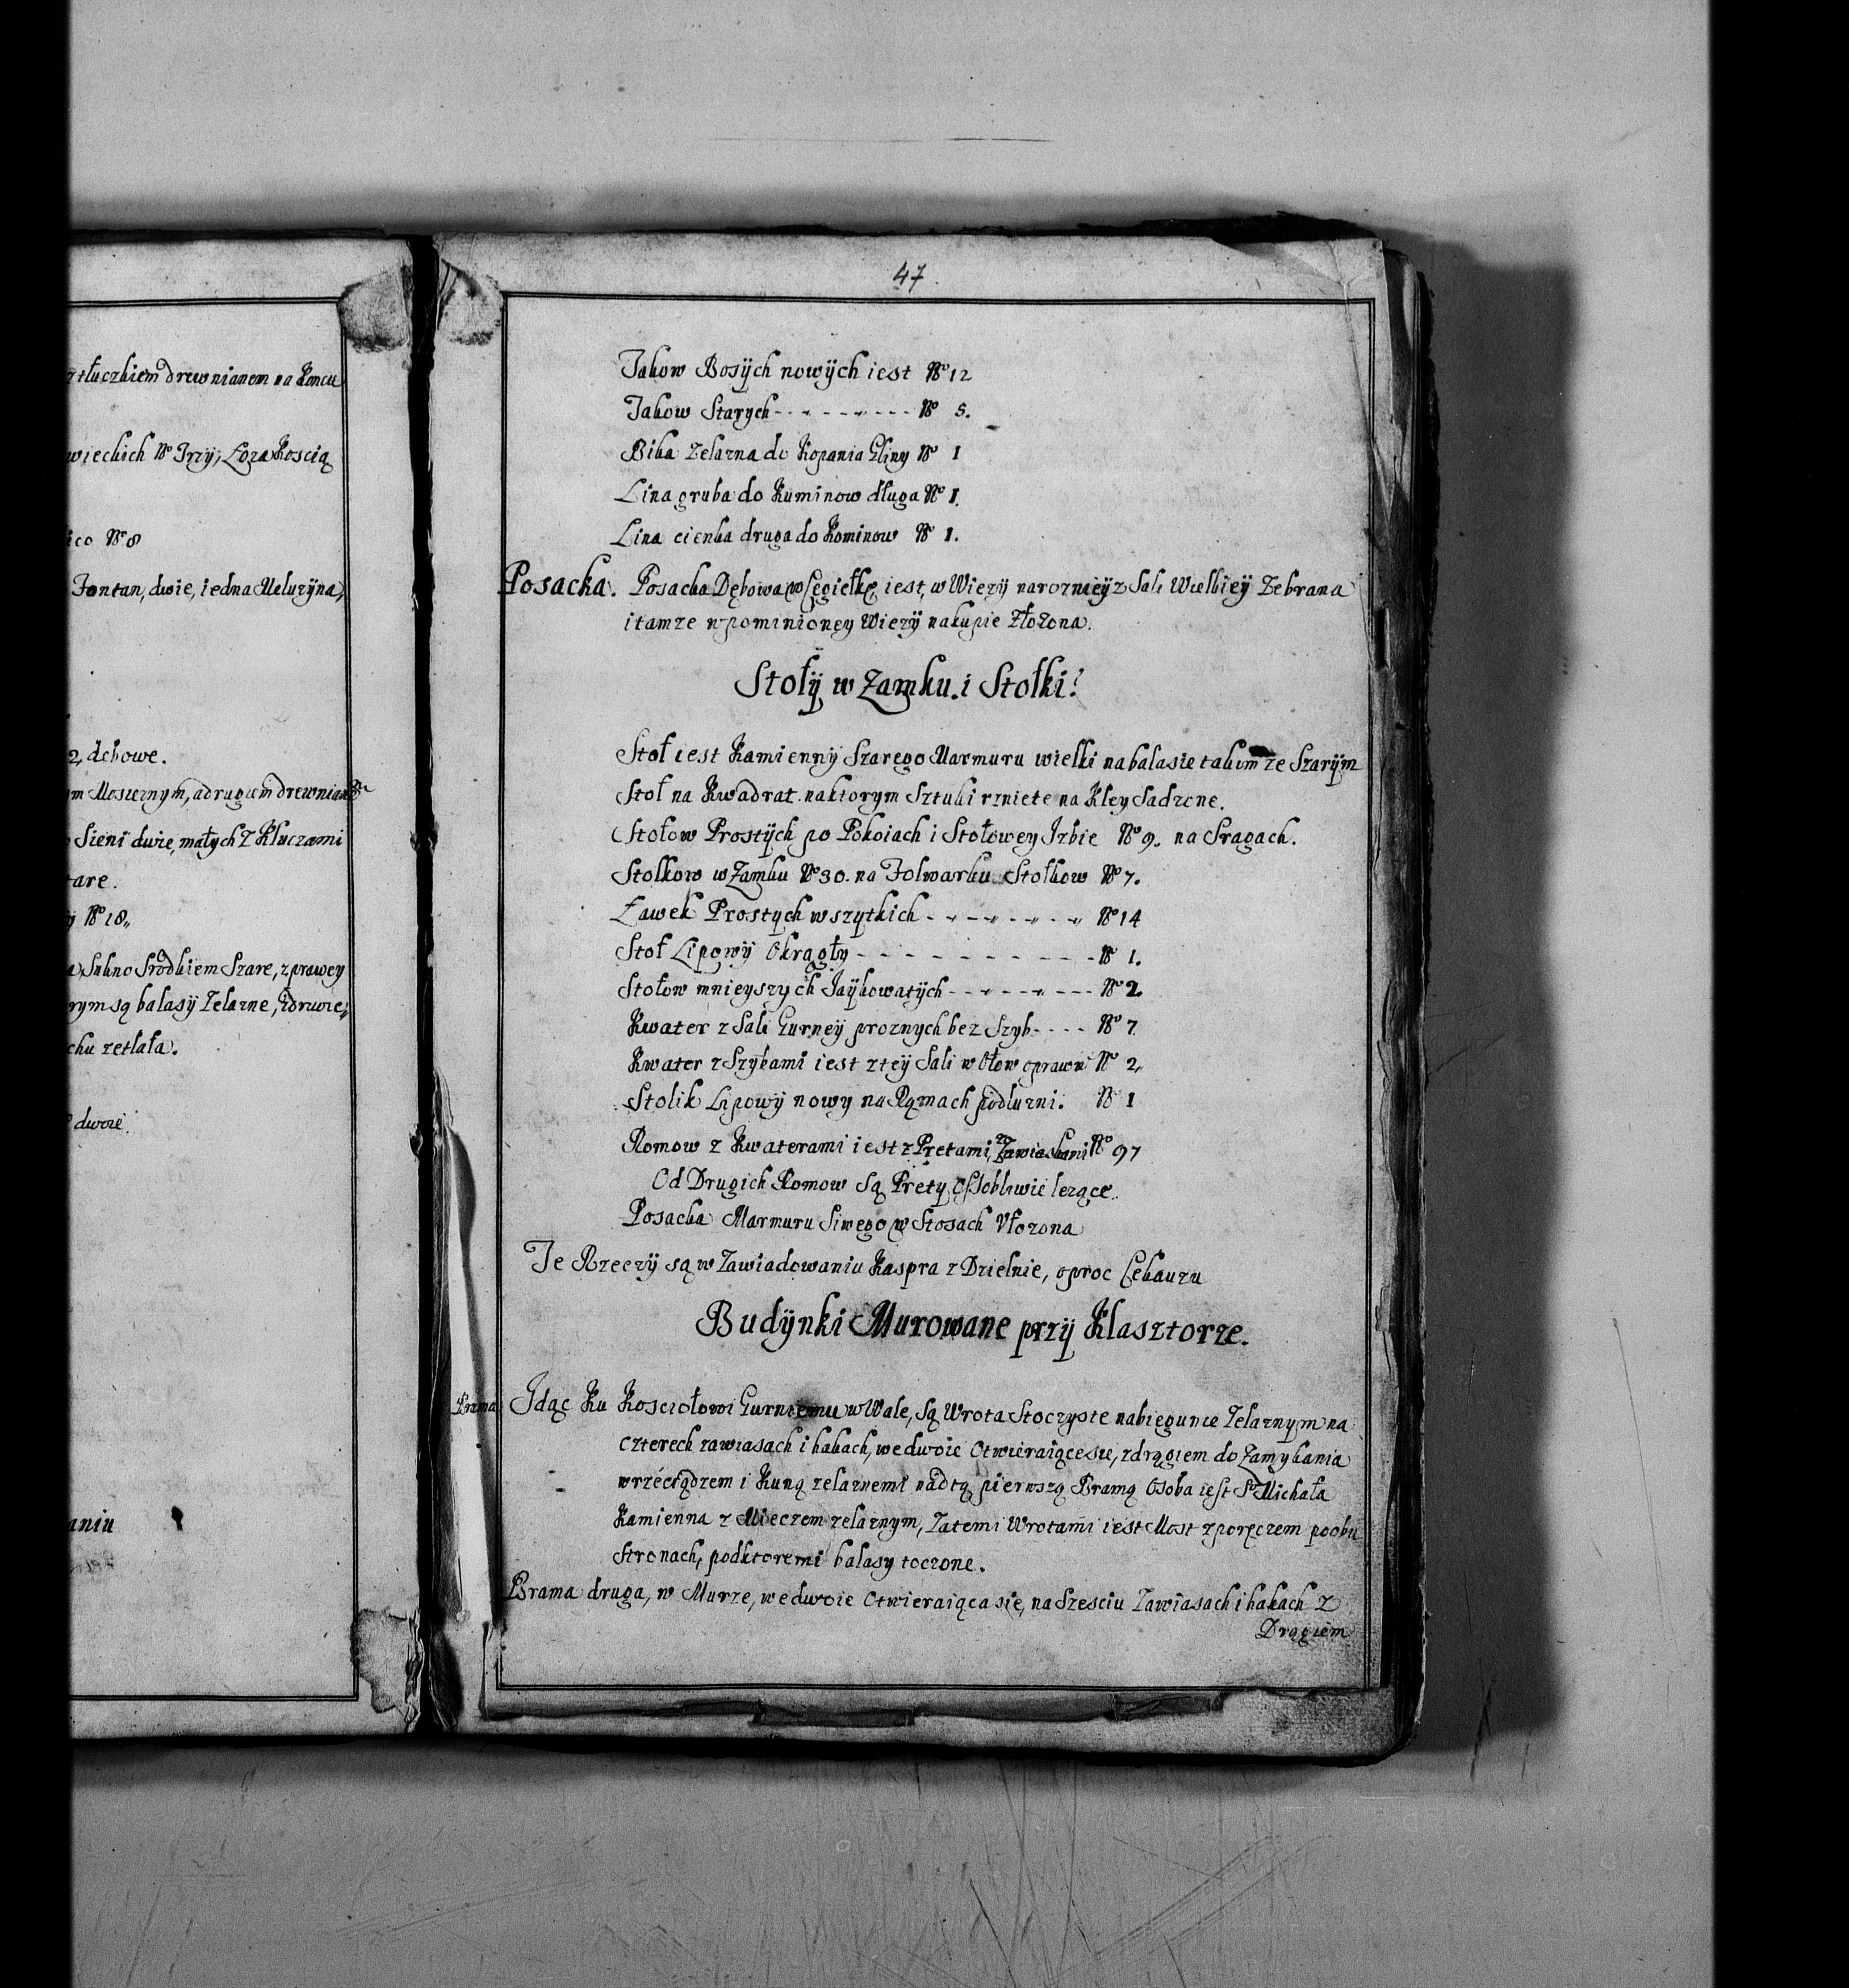 z tłuczkiem drewnianem na Koncu
wieckich No Trzy, Łoza Koscią
No 8
Fontan, dwie, iedna Meluzyna,
2, dchowe.
ym Mosieznym, adrugiem drewnian
Sieni dwie, małych z Kluczami
tare.
No 18,
Sukno Srodkiem Szare, z prawey
rym są balasÿ Zelazne, zdrwie,
chu zetlała.
dwoie.
aniu
47
Jakow Bosÿch nowÿch iest No 12
Jakow Starych - - - - - - - No 5.
Bika Zelazna do Kopania Gliny No 1
Lina gruba do Kuminow długa No 1.
Lina cienka druga do Kominow No 1.
Posacka. Posacka Dębowa w Cegiełkę, iest, w Wiezÿ narozneÿ z Sali Wielkieÿ Zebrana
i tamze wpominioney Wiezÿ nakupie Złozona.
Stołÿ w Zamku. i Stołki.
Stoł iest Kamiennÿ Szarego Marmuru wielki nabalasie takimze Szarÿm
Stoł na Kwadrat. naktorym Sztuki rzniete na Kley Sadzone.
Stołow Prostÿch po Pokoiach i Stołowey Jzbie No 9. na Sragach.
Stolkow w Zamku No 30. na Folwarku Stołkow No 7.
Ławek Prostych wszytkich - - - - - - No 14
Stoł Lipowÿ Okrągły - - - - - - - - - - No 1.
Stołow mnieyszych Jaÿkowatÿch - - - - - - - No 2.
Kwater z Sali Gurneÿ proznych bez Szyb - - - - No 7
Kwater z Szybami iest z teÿ Sali w Ołow oprawn No 2,
Stolik Lipowÿ nowy na Rąmach podłuzni. No 1
Romow z Kwaterami iest z Pretami, z Zawiaskami No 97
Od Drugich Romow są Prety Ossobliwie lezące.
Posacka Marmuru Siwego w Stosach Ułozona
Te Rzeczÿ są w Zawiadowaniu Kaspra z Dzielnie, oproc Cekauzu
Budÿnki Murowane przÿ Klasztorze.
Brama Jdąc Ku Koscıołowi Gurniemu w Wale, są Wrota Stoczyste nabiegunie Zelaznym na
czterech zawiasach i hakach, wedwoie Otwieraiącesie, z drągiem do Zamykania
wrzéciądzem i Kuną zelaznemi nadtą pierwszą Bramą Osoba iest S. Michała
Kamienna z Mieczem zelaznym, Zatemi Wrotami iest Most z poręczem poobu
Stronach, podktoremi balasy toczone.
Brama druga, w Murze, wedwoie Otwieraiąca się, na Szesciu Zawiasach i hakach z
Drągiem